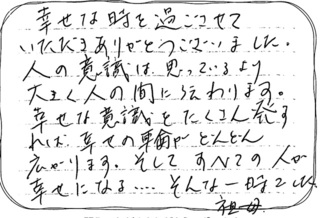 幸せな時を過ごさせて
いただきありがとうございました。
人の意識は思っているより
大きく人の間に伝わります。
幸せな意識をたくさん発す
れば、幸せの輪が どんどん
広がります。そして すべての人が
幸せになる…. そんな一時でした
祖母